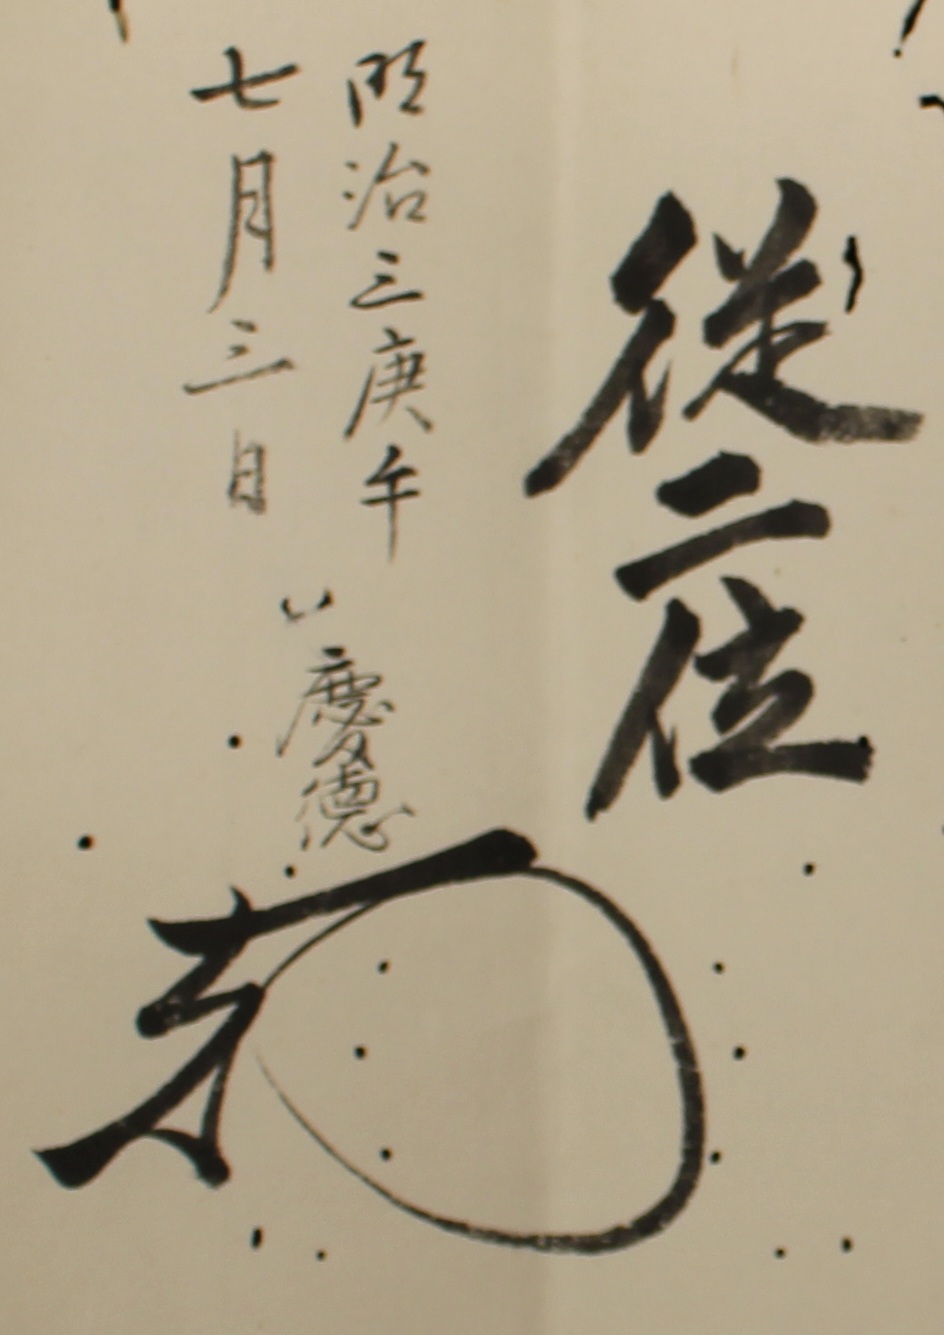 從二位
明治三庚午
七月三日
慶德